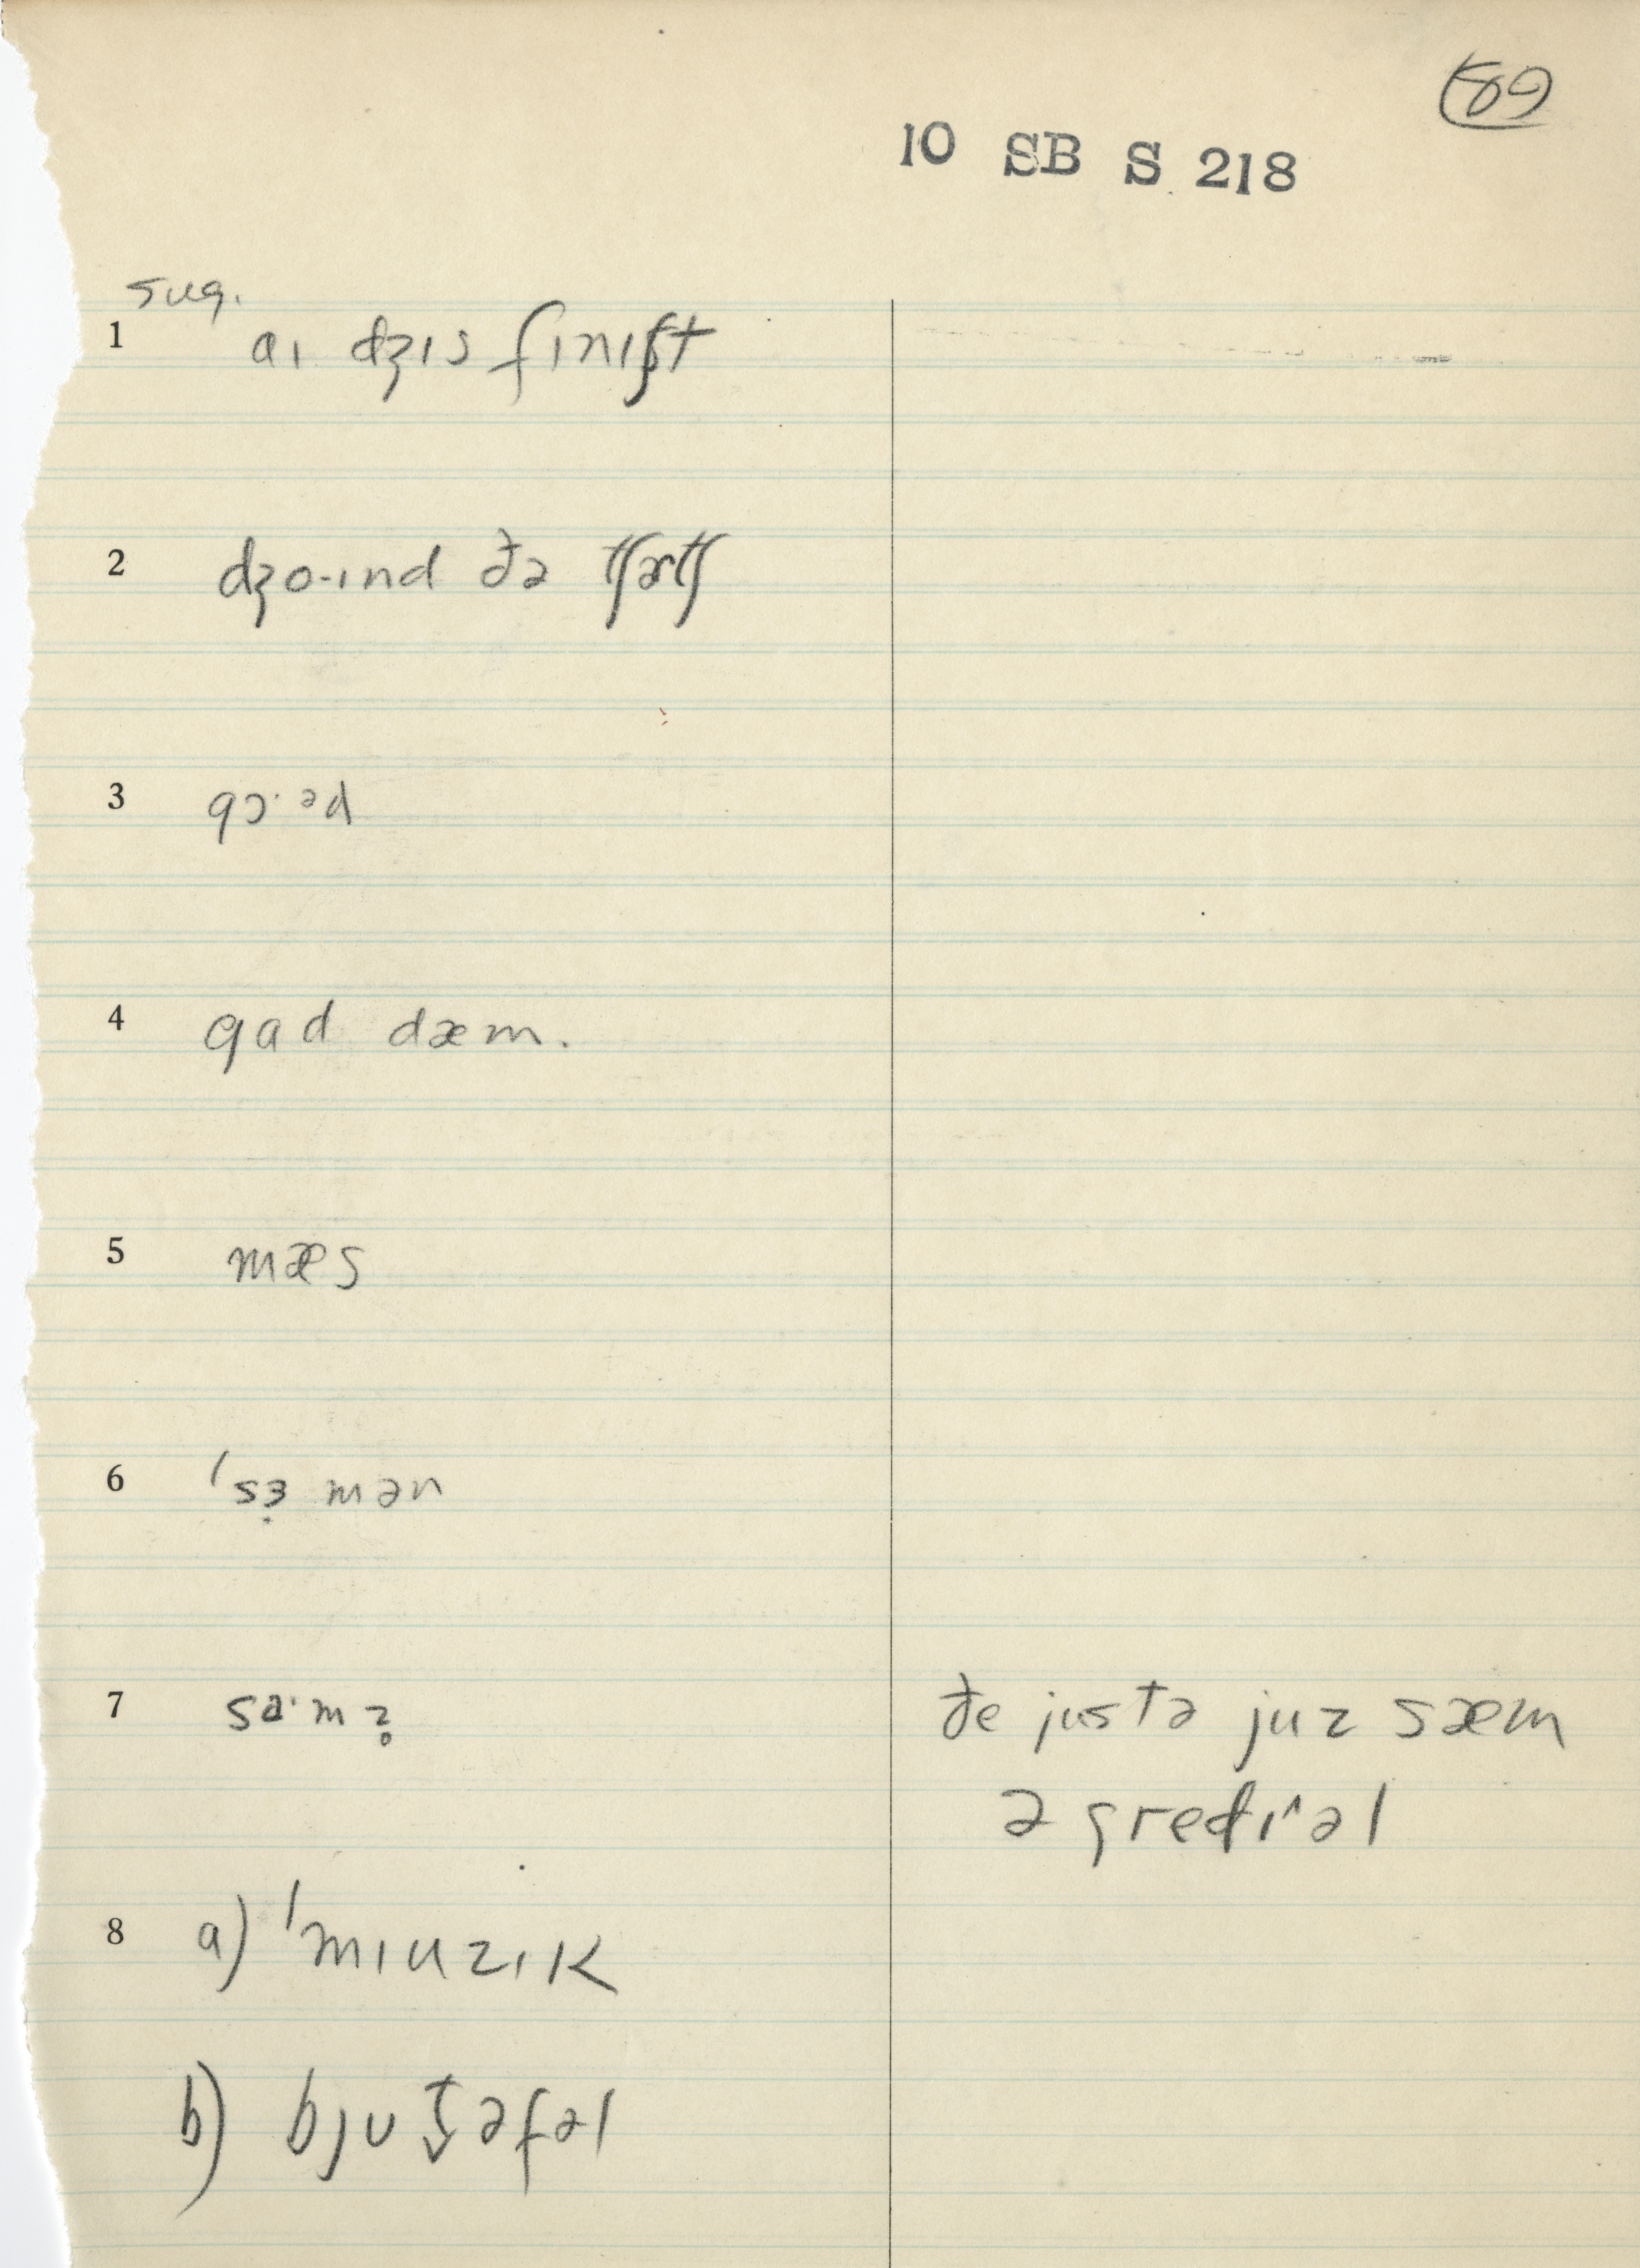 89
10 SB S 218
sug.
1 aɪ dʒɪs fɪnɪʃt
2 dʒo·ɪnd ðə tʃɜtʃ
3 gɔ·əd
4 gɑd dæm.
5 mæs
6 ˈsɜ̣ mən
7 sɑ·mz̥ ðe justə juz sæm
ə gredɪˈəl
8 a) ˈmɪuzɪk
b) bjut̬əfəl